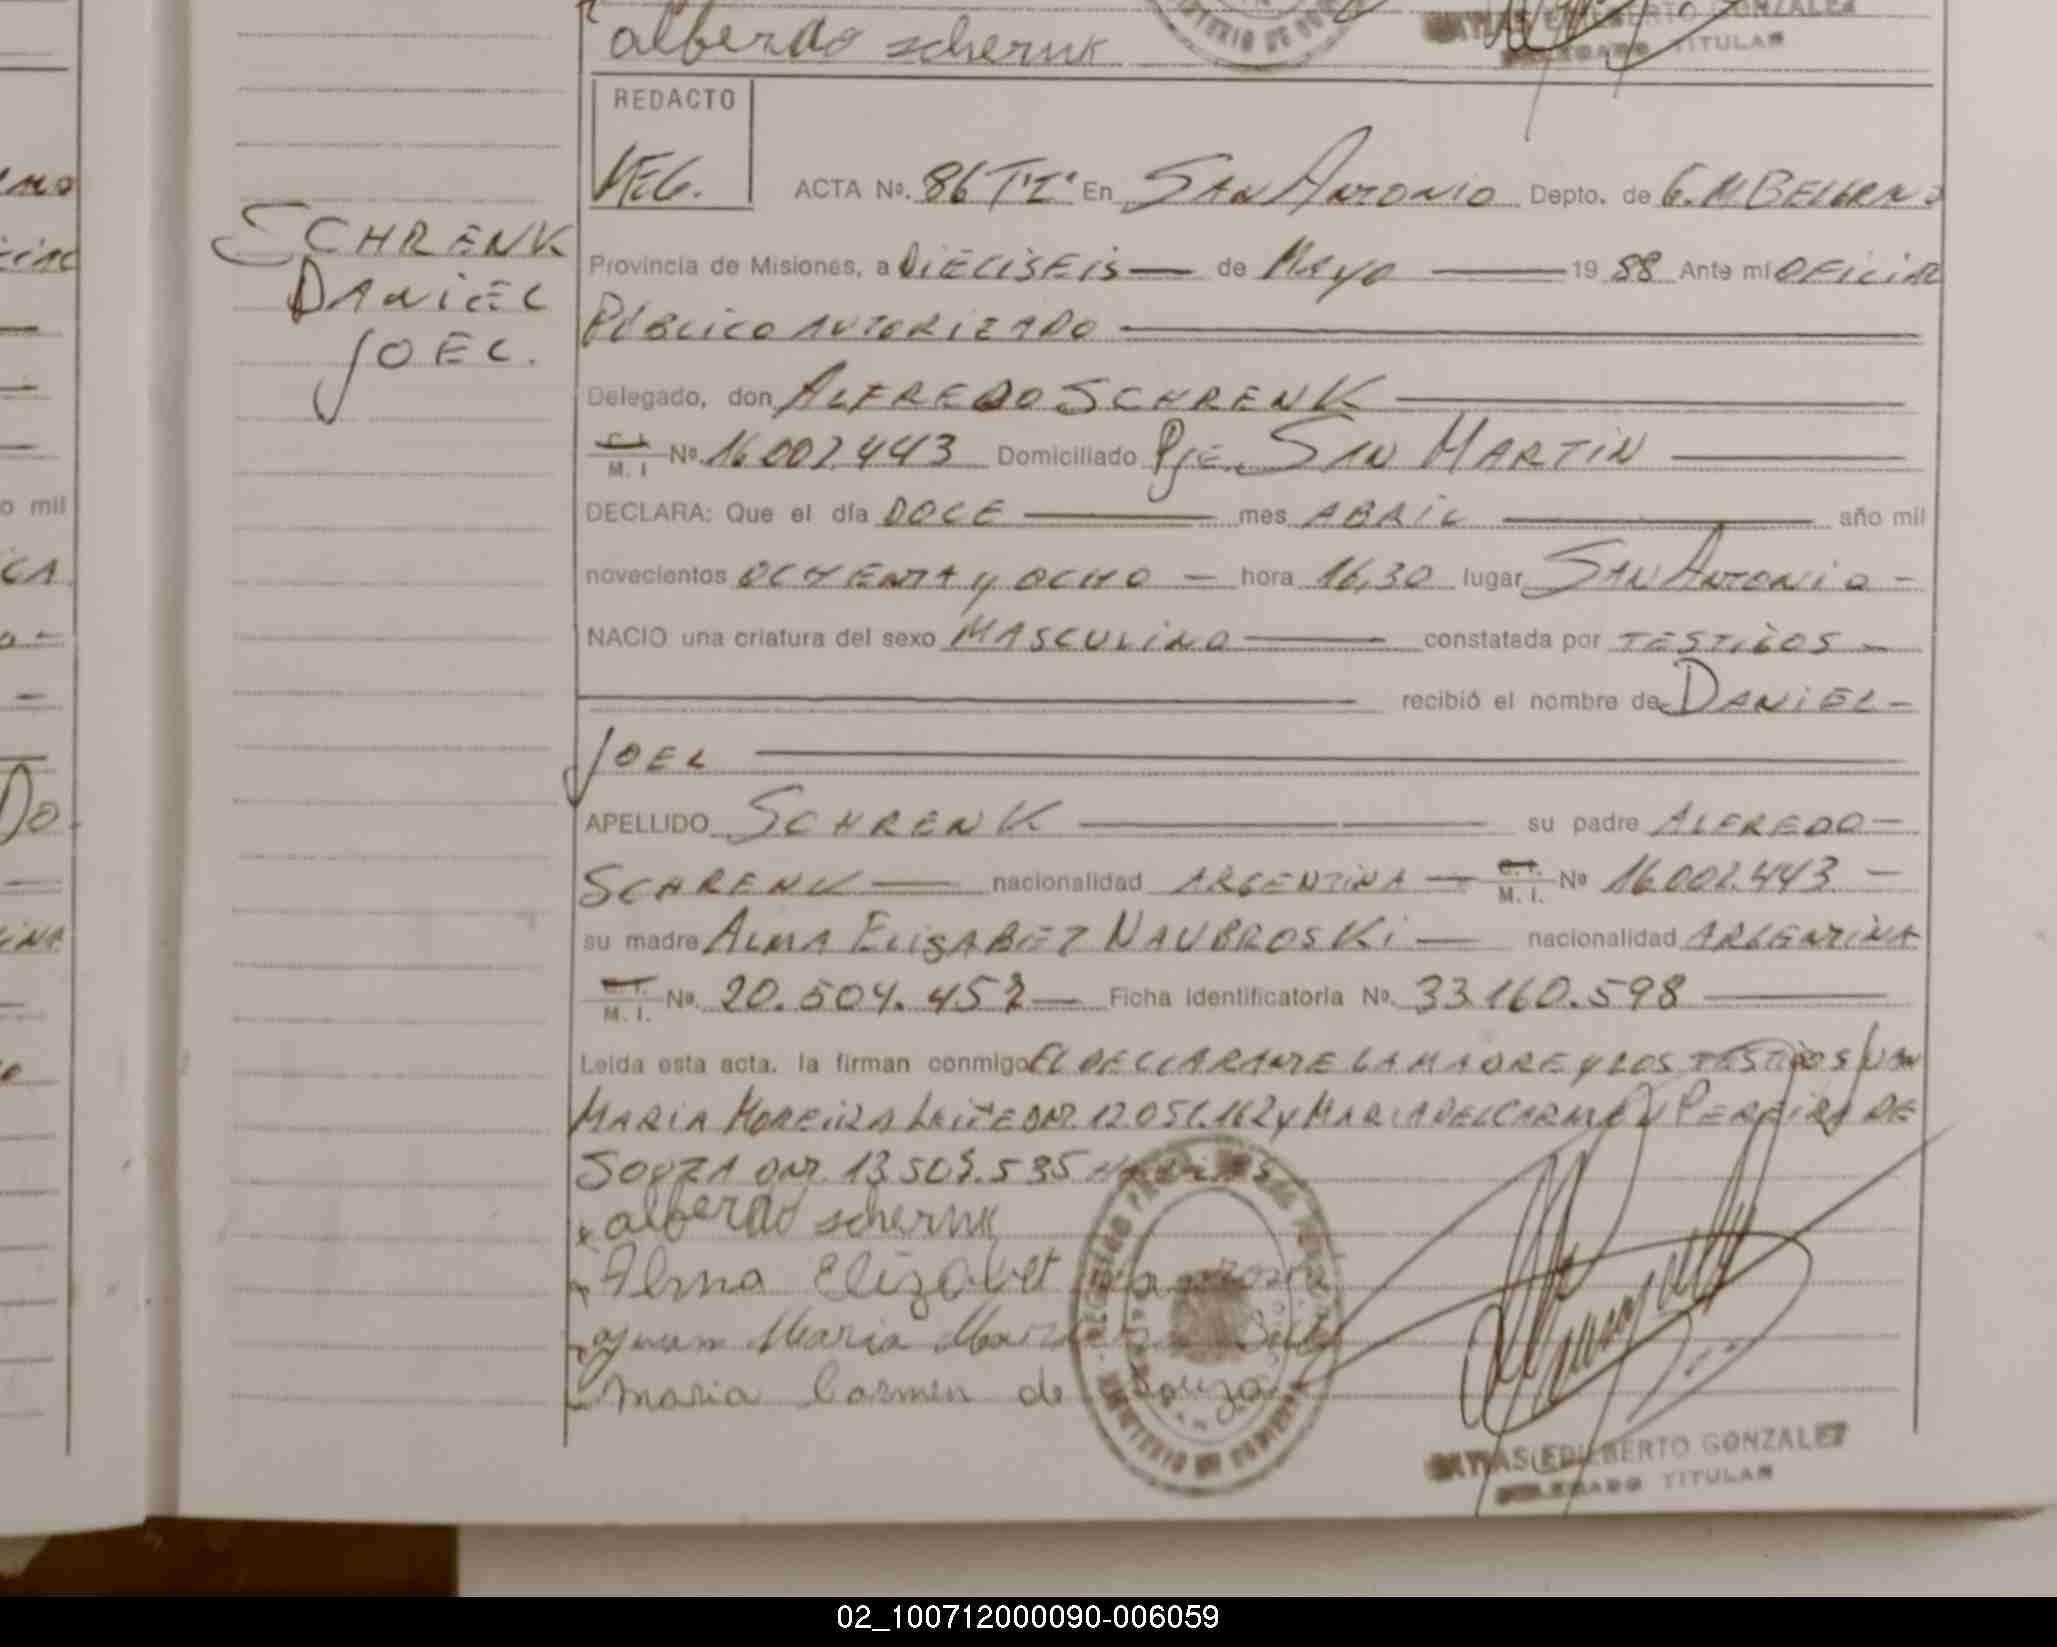 alberdo schernk
EDILBERTO GONZALEZ
DELEGADO TITULAR
REDACTO
MEG.
ACTA Nº. 86 T"I" En SAN ANTONIO Depto. de G.M BELGRNO
SCHRENK
DANIEL
JOEL.
Provincia de Misiones, a DIECISEIS — de MAYO — 19 88 Ante mi OFICIAL
PUBLICO AUTORIZADO —
Delegado, don ALFREDO SCHRENK —
C. I. / M. I Nº. 16.002.443 Domiciliado Pje. SAN MARTIN —
DECLARA: Que el día DOCE — mes ABRIL — año mil
novecientos OCHENTA y OCHO — hora 16,30 lugar SAN ANTONIO —
NACIO una criatura del sexo MASCULINO — constatada por TESTIGOS —
— recibió el nombre de DANIEL —
JOEL —
APELLIDO SCHRENK — su padre ALFREDO —
SCHRENK — nacionalidad ARGENTINA — C.I. / M. I. Nº 16.002.443 —
su madre ALMA ELISABET NAUBROSKI — nacionalidad ARGENTINA
C.I. / M. I. Nº. 20.504.457 — Ficha identificatoria Nº. 33.160.598 —
Leida esta acta, la firman conmigo EL DECLARANTE LA MADRE y LOS TESTIGOS JUAN
MARIA MOREIRA LEITE DNI. 12.051.162 y MARIA DEL CARMEN PEREIRA DE
SOUZA DNI. 13.507.535
x alberdo schernk
Alma Elizabet
Maria
maria Carmen de Souza
MINISTERIO DE GOBIERNO
EDILBERTO GONZALEZ
DELEGADO TITULAR
o mil
CA
DO.
02_100712000090-006059